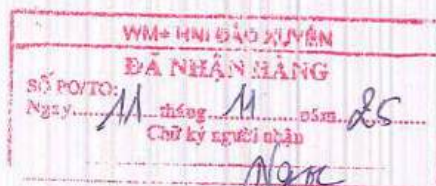 WM+ HNI ĐÀO XUYÊN
ĐÃ NHẬN HÀNG
SỐ PO/TO:
Ngày 11 tháng 11 năm 25
Chữ ký người nhận
Ngọc